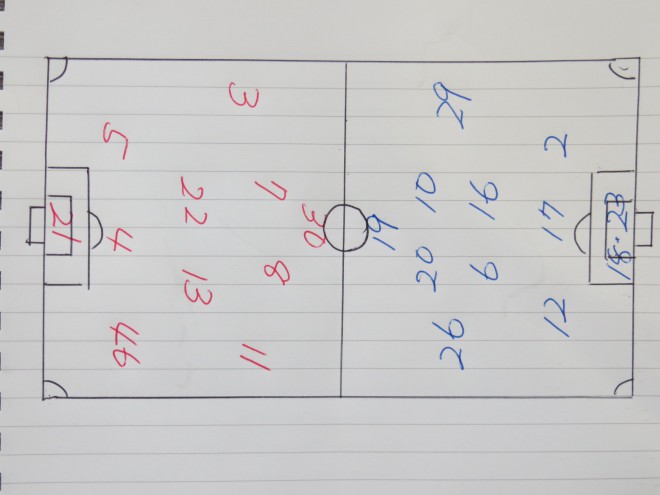 21
5
4
46
22
13
3
7
8
11
30
19
29
10
20
26
16
6
2
17
12
18·23